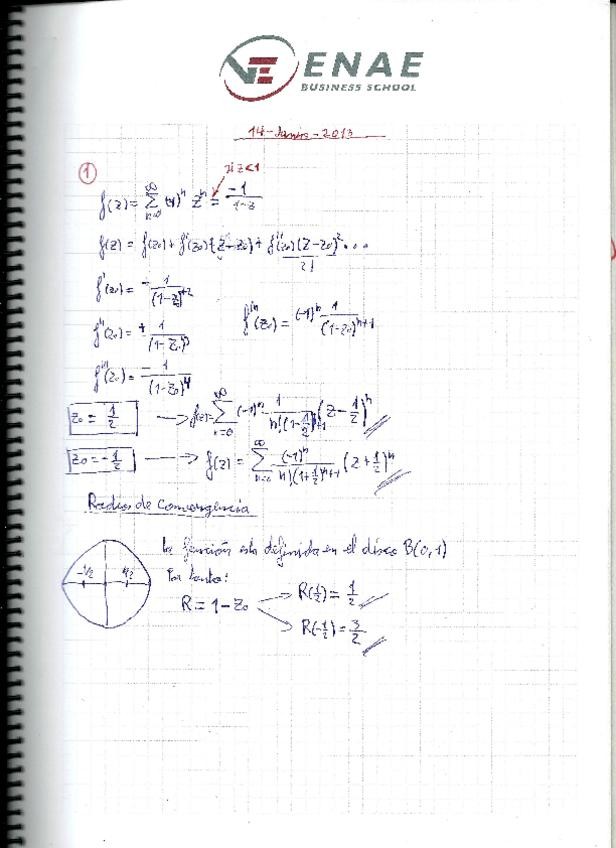 ENAE
BUSINESS SCHOOL
14-Junio-2013
1
si z<1
f(z) = ∑_{n=0}^{∞} (-1)^n z^n = -1/(1-z)
f(z) = f(z₀) + f'(z₀)(z-z₀) + f''(z₀)(z-z₀)²/2! ...
f'(z₀) = -1/(1-z₀)^{+2}
f''(z₀) = +1/(1-z₀)³
f^{(n}(z₀) = (-1)^n 1/(1-z₀)^{n+1}
f'''(z₀) = -1/(1-z₀)^4
z₀ = 1/2 → f(z) = ∑_{n=0}^{∞} (-1)^n 1/(n!(1-1/2)^{n+1}) (z-1/2)^n
z₀ = -1/2 → f(z) = ∑_{n=0}^{∞} (-1)^n/(n!(1+1/2)^{n+1}) (z+1/2)^n
Radios de Convergencia
-1/2 1/2
la función esta definida en el disco B(0,1)
Por tanto:
R = 1-z₀
R(1/2) = 1/2
R(-1/2) = 3/2